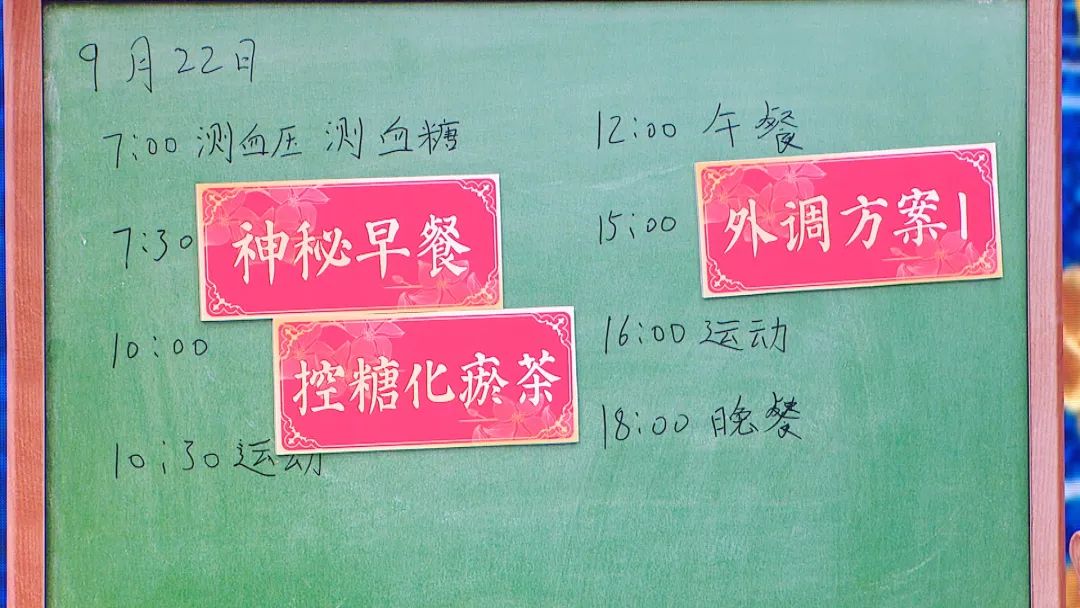 9月22日
7:00 测血压 测血糖
7:30 神秘早餐
10:00 控糖化瘀茶
10:30 运动
12:00 午餐
15:00 外调方案1
16:00 运动
18:00 晚餐